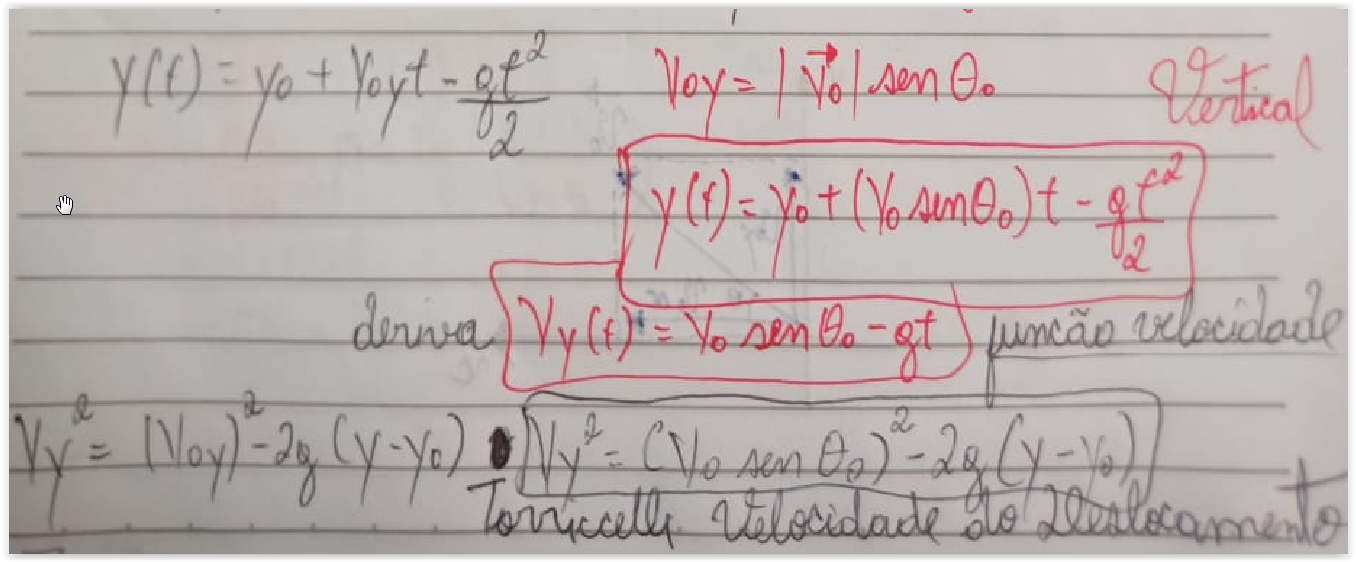 y(t) = y₀ + V₀yt - gt²/2 V₀y = |V⃗₀| sen θ₀ Vertical
y(t) = y₀ + (V₀ sen θ₀)t - gt²/2
deriva Vy(t) = V₀ sen θ₀ - gt função velocidade
Vy² = (V₀y)² - 2g (y-y₀) Vy² = (V₀ sen θ₀)² - 2g (y-y₀)
Torriccelli Velocidade do Deslocamento